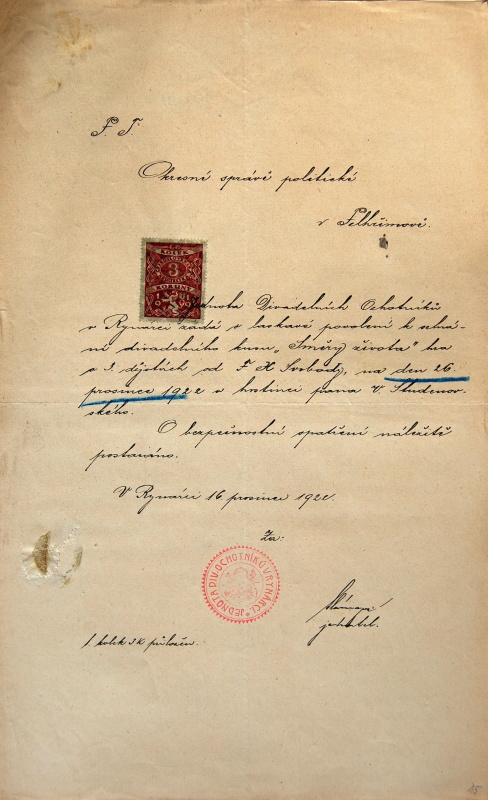 P. T.
Okresní správě politické
v Pelhřimově.
KOLEK
3
KORUNY
Jednota Divadelních Ochotníků
v Rynárci žádá o laskavé povolení k sehrá-
ní divadelního kusu „Směry života" hra
o 3. dějstvích od F. X. Svobody, na den 26.
prosince 1922 v hostinci pana V. Studenov-
ského.
O bezpečnostní opatření náležitě
postaráno.
V Rynárci 16 prosince 1922.
Za:
JEDNOTA DIV. OCHOTNÍKŮ V RYNÁRCI.
jednatel.
1 kolek 3 K přiložen.
15